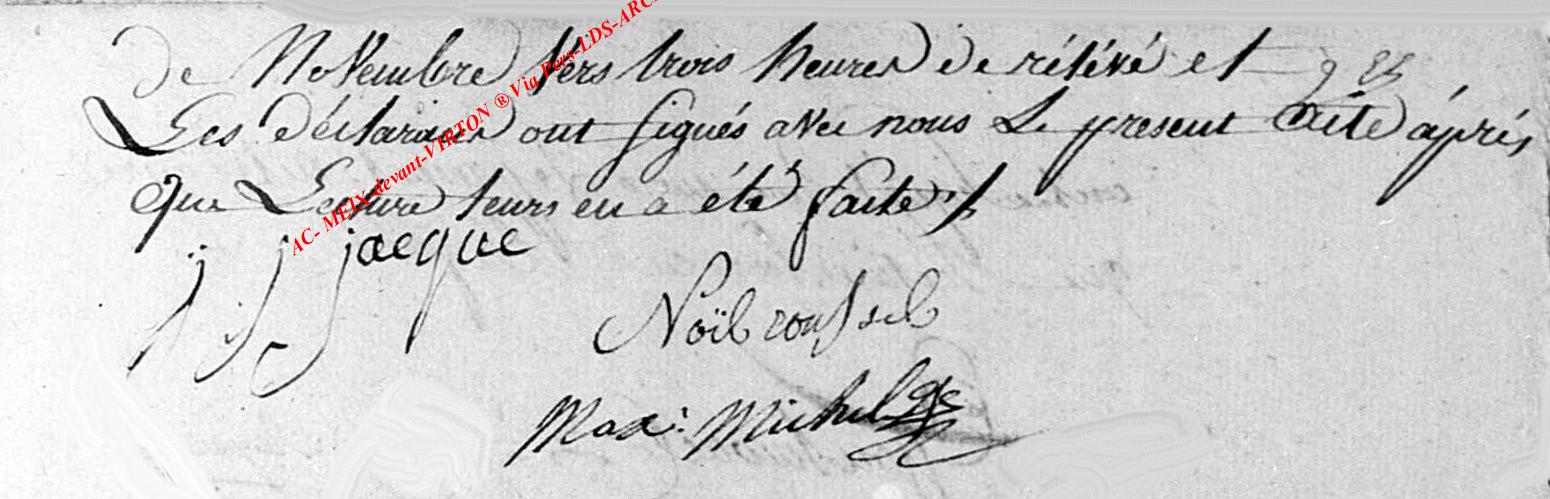 de Novembre vers trois heures de rélévé et
Les déclarans ont signés avec nous Le present acte áprés
que Lecture leurs en a été faite
j j jacque
Noïl roussel
Max: Michel
AC- MEIX-devant-VIRTON ® Via Pers-LDS-ARC